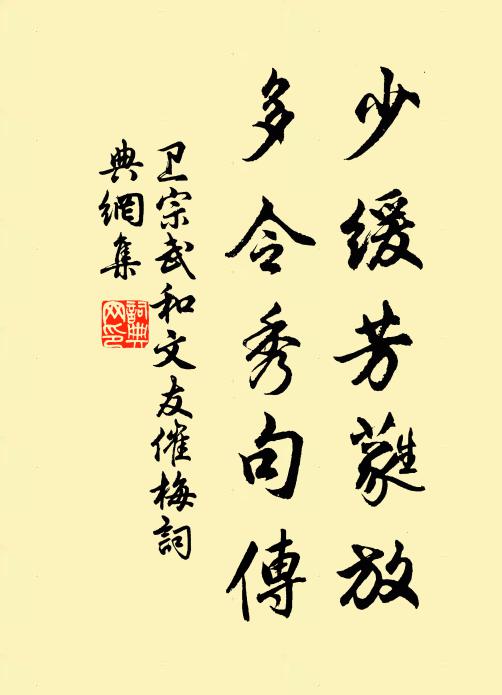 少缓芳蕤放
多令秀句傳
卫宗武和文友催梅詞
典網集
詞典网印